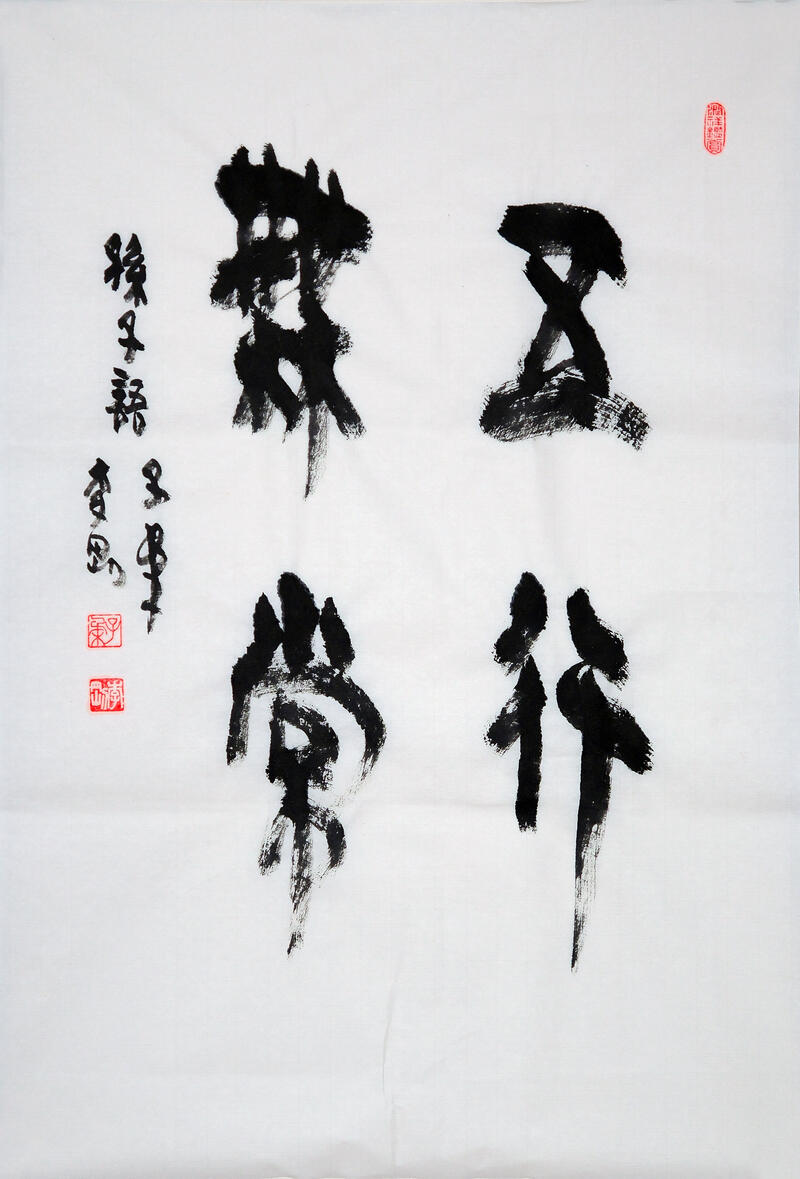 五行
無常
孫子語
李剛